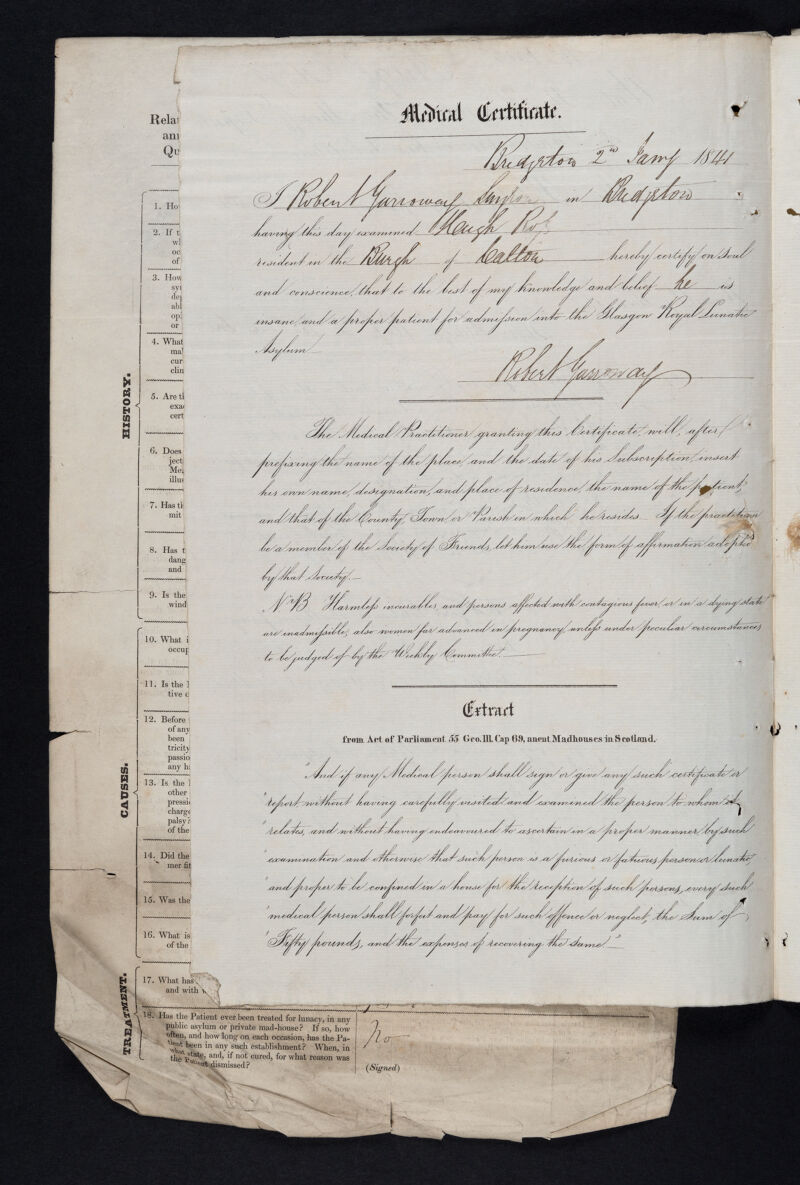 Medical Certificate.
Bridgeton 2nd Jany 1841
I Robert Garroway Surgeon in Bridgeton
having this day examined Hugh
resident in the Burgh of Calton hereby certify on soul
and conscience, that to the best of my knowledge and belief he is
insane, and a proper patient for admission into the Glasgow Royal Lunatic
Asylum
Robert Garroway
The Medical Practitioner granting this Certificate, will, after
prefixing the name of the place, and the date of his Subscription, insert
his own name, designation, and place of residence, the name of the patient,
and that of the County, Town or Parish in which he resides. If the practitioner
be a member of the Society of Friends, let him use the form of affirmation adopted
by that Society.—
N.B. Harmless incurables, and persons affected with contagious fever or in a dying state
are inadmissible, also women far advanced in pregnancy, unless under peculiar circumstances
to be judged of by the Weekly Committee.
Extract
from Act of Parliament 55 Geo. III. Cap 69, anent Madhouses in Scotland.
"And if any Medical person shall sign or give any such certificate or
"report without having carefully visited and examined the person to whom it
"relates, and without having endeavoured to ascertain in a proper manner by such
"examination and otherwise that such person is a furious or fatuous person or lunatic
"and proper to be confined in a house for the reception of such persons, every such
"medical person shall forfeit and pay for such offence or neglect, the Sum of
"Fifty pounds, and the expenses of recovering the same"
Rela
an
Qu
HISTORY.
1. Ho
2. If t
wh
oc
of
3. How
sy
de
abl
op
or
4. What
ma
cur
clin
5. Are t
exa
cert
6. Does
ject
Me
illu
7. Has t
mit
8. Has t
dang
and
9. Is the
wind
CAUSES.
10. What i
occup
11. Is the
tive c
12. Before
of any
been
tricity
passio
any h
13. Is the
other
pressi
charge
palsy?
of the
14. Did the
mer fit
15. Was the
16. What is
of the
TREATMENT.
17. What has
and with
18. Has the Patient ever been treated for lunacy, in any
public asylum or private mad-house? If so, how
often, and how long on each occasion, has the Pa-
tient been in any such establishment? When, in
what state, and, if not cured, for what reason was
the Patient dismissed?
No
(Signed)